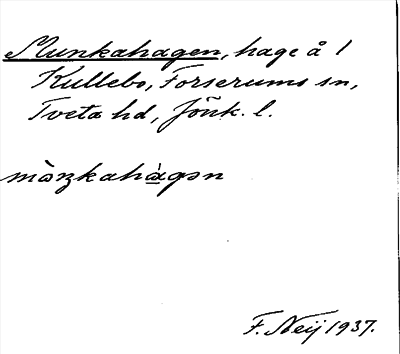 Munkahagen, hage å 1
Kullebo, Forserums sn,
Tveta hd, Jönk. l.
mòŋkahàgən
F. Neij 1937.